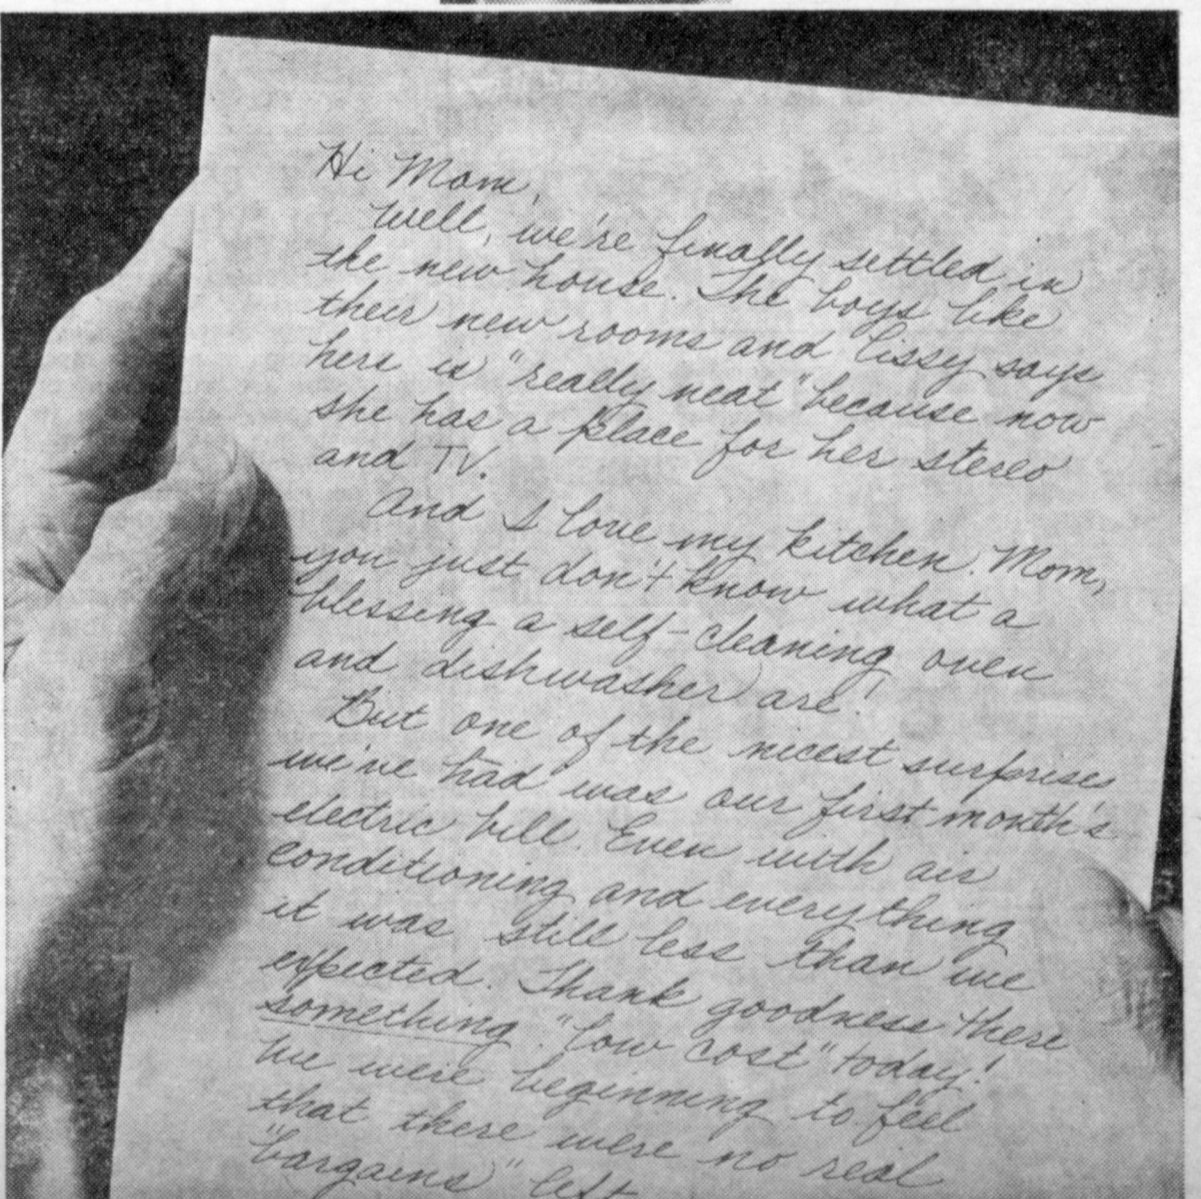 Hi Mom,
Well, we're finally settled in
the new house. The boys like
their new rooms and Cissy says
hers is "really neat" because now
she has a place for her stereo
and TV.
And I love my kitchen. Mom,
you just don't know what a
blessing a self-cleaning oven
and dishwasher are!
But one of the nicest surprises
we've had was our first month's
electric bill. Even with air
conditioning and everything
it was still less than we
expected. Thank goodness there
something "low cost" today!
We were beginning to feel
that there were no real
"bargains" left